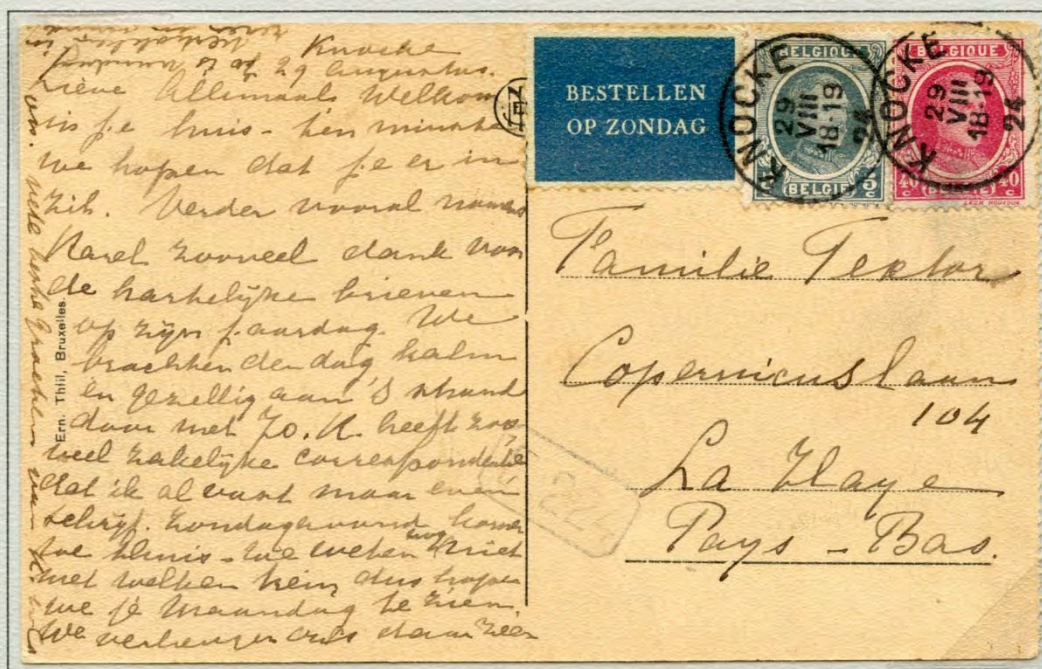 Knocke
29 Augustus.
Lieve Allemaals Welkom
in je huis - ten minste
we hopen dat je er in
zit. Verder vooral namens
Karel zooveel dank voor
de hartelijke brieven
op zijn j.aardag. We
brachten den dag kalm
en gezellig aan 's strand
door met Jo. K. heeft zoo
veel zakelijke correspondentie
dat ik al vast maar even
schrijf. Zondagavond komen
we thuis - we weten nog niet
met welken trein, dus hopen
we je Maandag te zien.
We verlangen ons daar zeer
vele hartel. groeten van
Ern. Thill, Bruxelles.
BESTELLEN
OP ZONDAG
BELGIQUE
BELGIË
5
c
BELGIQUE
40 (BELGIË) 40
c c
KNOCKE
29
VIII
18-19
24
KNOCKE
29
VIII
18-19
24
Familie Tektor
Copernicuslaan
104
La Haye
Pays - Bas.
224